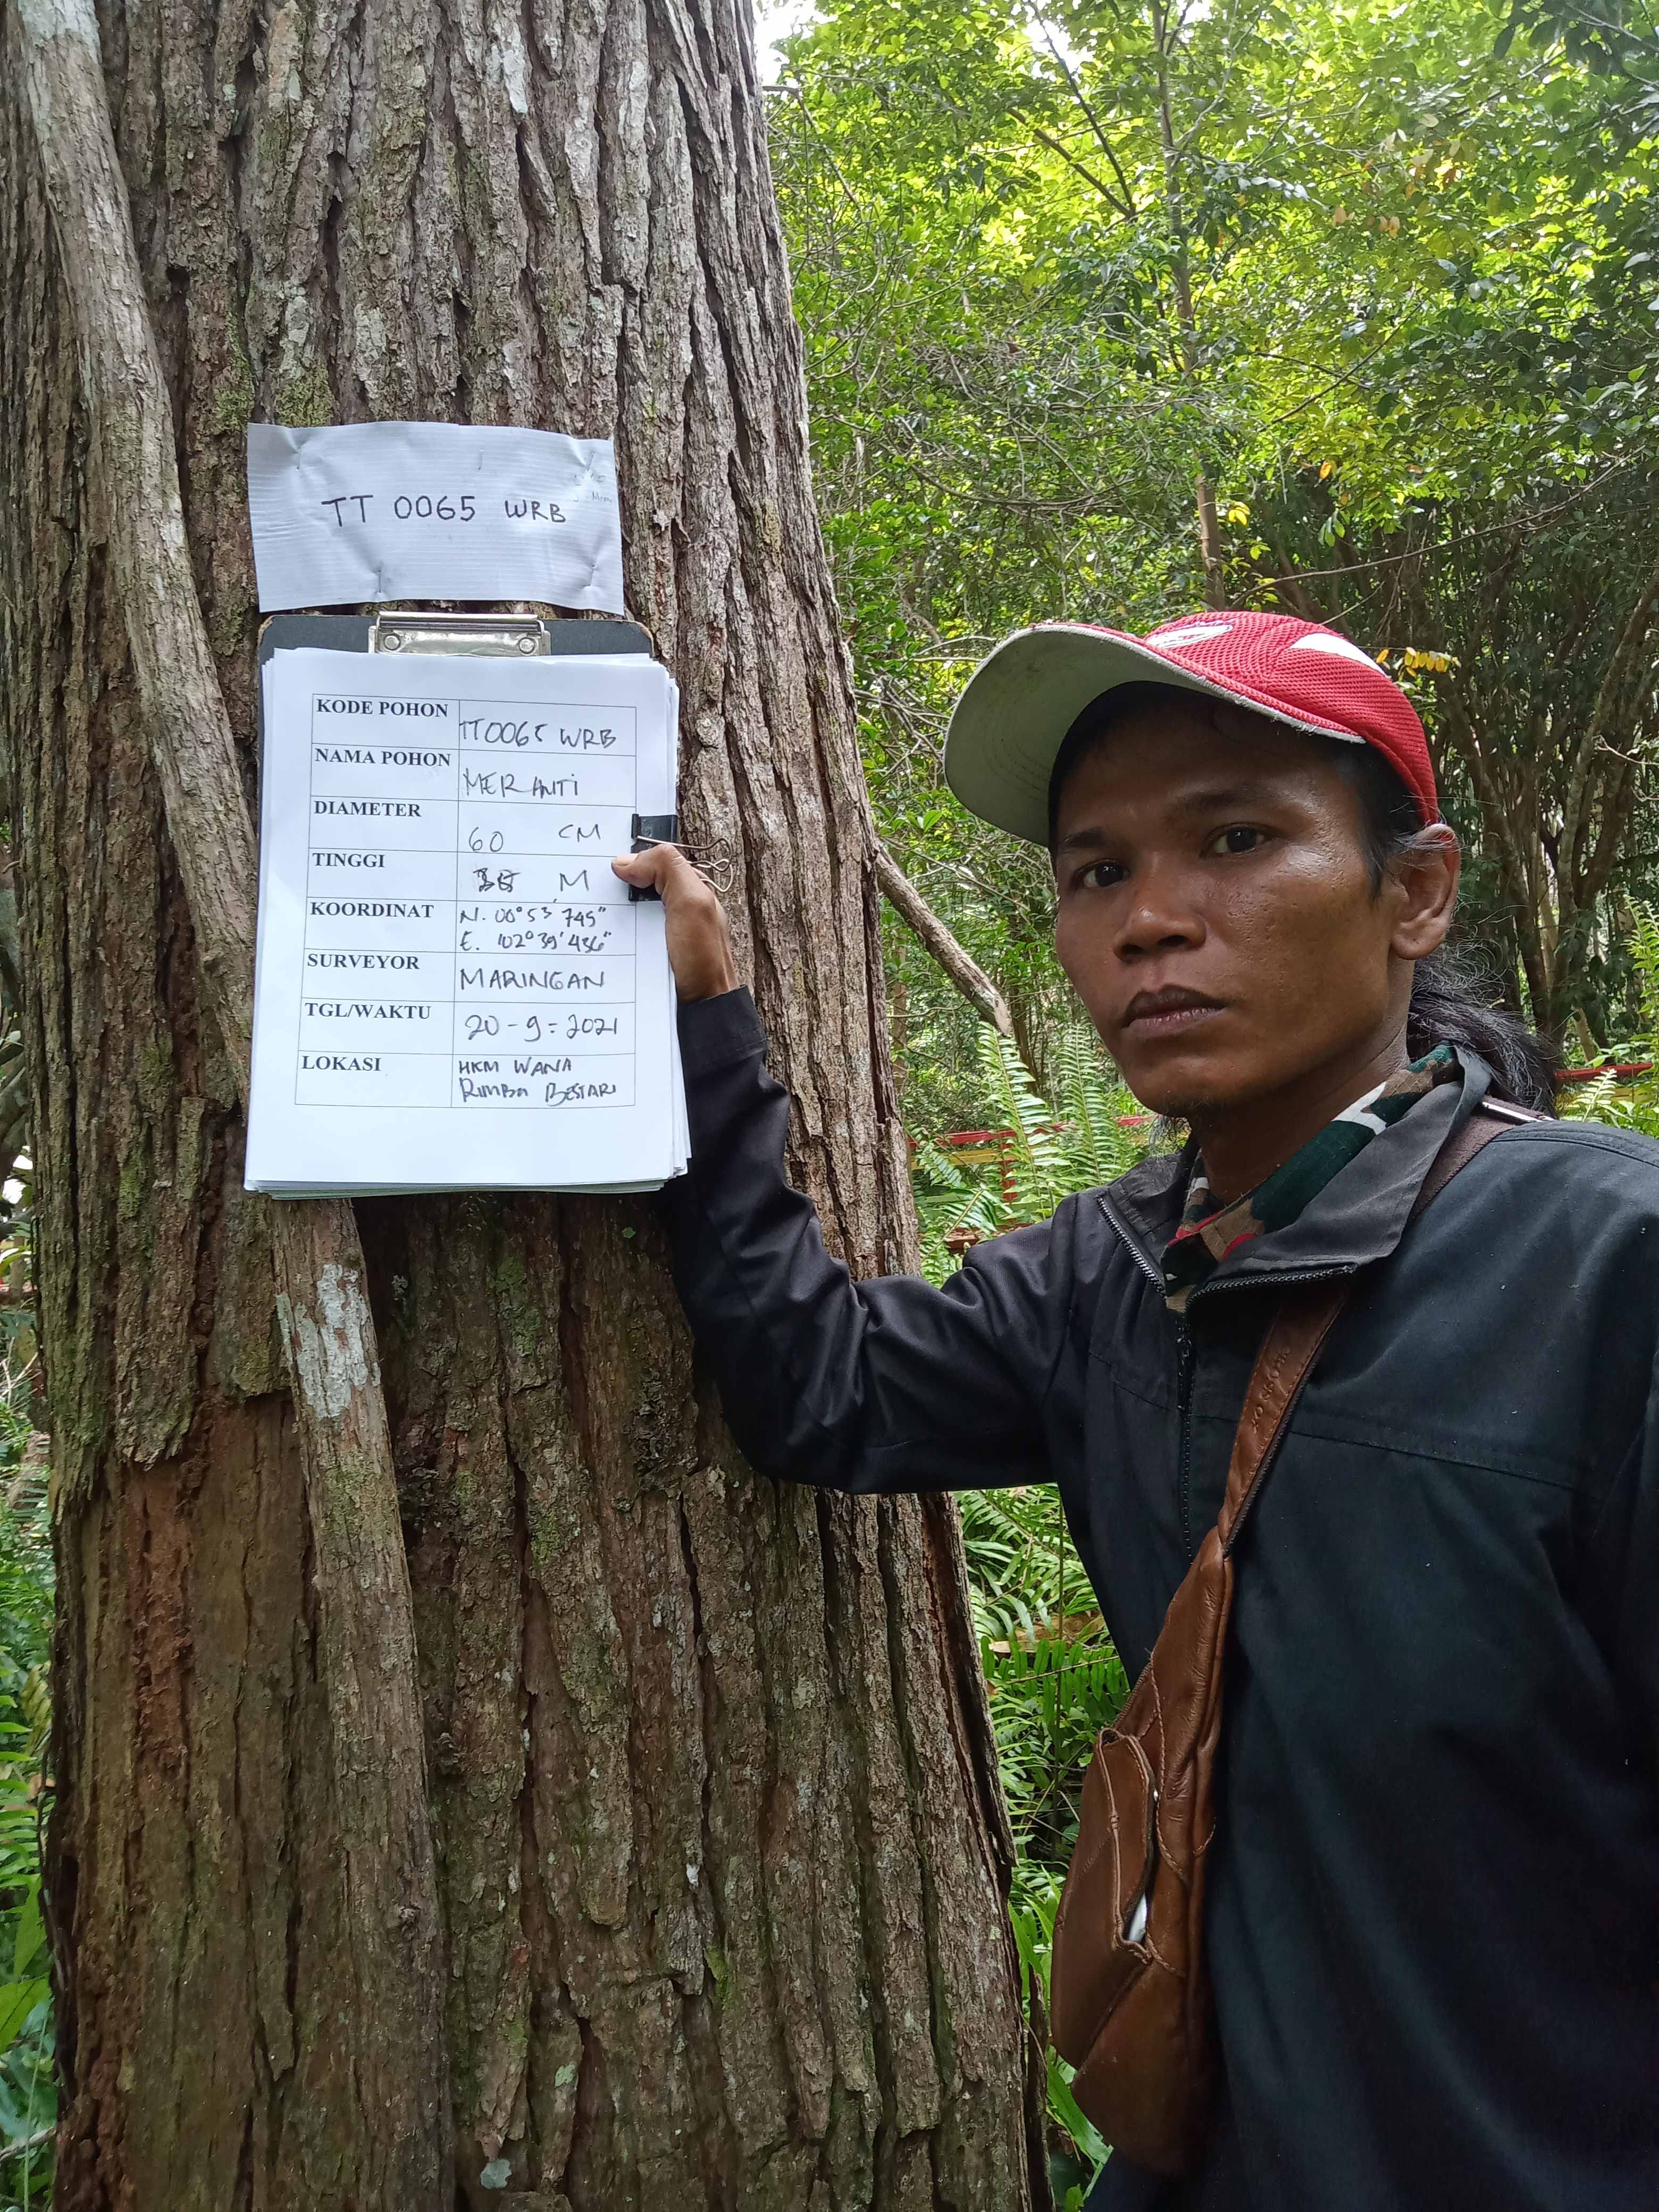 TT 0065 WRB
KODE POHON TT0065 WRB
NAMA POHON MERANTI
DIAMETER 60 CM
TINGGI M
KOORDINAT N. 00°53'745"
E. 102°39'436"
SURVEYOR MARINGAN
TGL/WAKTU 20-9-2021
LOKASI HKM WANA
RIMBA BESTARI